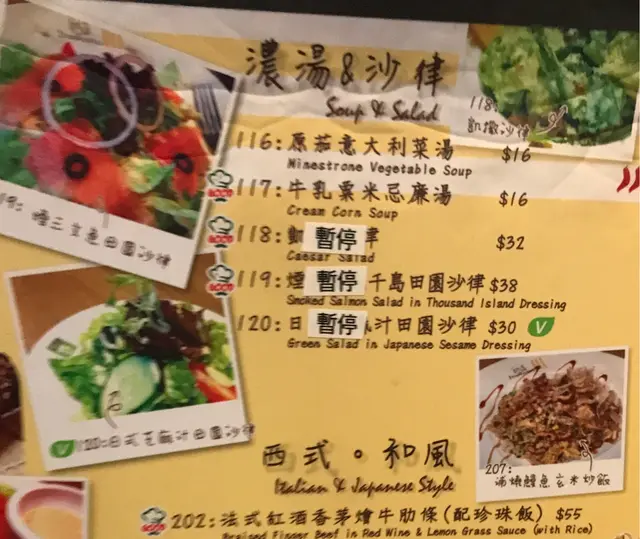 濃湯&沙律
Soup & Salad
118:
凱撒沙律
116:原茄意大利菜湯 $16
Minestrone Vegetable Soup
117:牛乳粟米忌廉湯 $16
Cream Corn Soup
118:凱 暫停 律 $32
Caesar Salad
119:煙 暫停 千島田園沙律 $38
Smoked Salmon Salad in Thousand Island Dressing
120:日 暫停 汁田園沙律 $30 V
Green Salad in Japanese Sesame Dressing
119:煙三文魚田園沙律
V 120:日式芝麻汁田園沙律
西式。和風
Italian & Japanese Style
207:
汤燒鰻魚玄米炒飯
GOOD 202:法式紅酒香茅燴牛肋條(配珍珠飯) $55
Braised Finger Beef in Red Wine & Lemon Grass Sauce (with Rice)